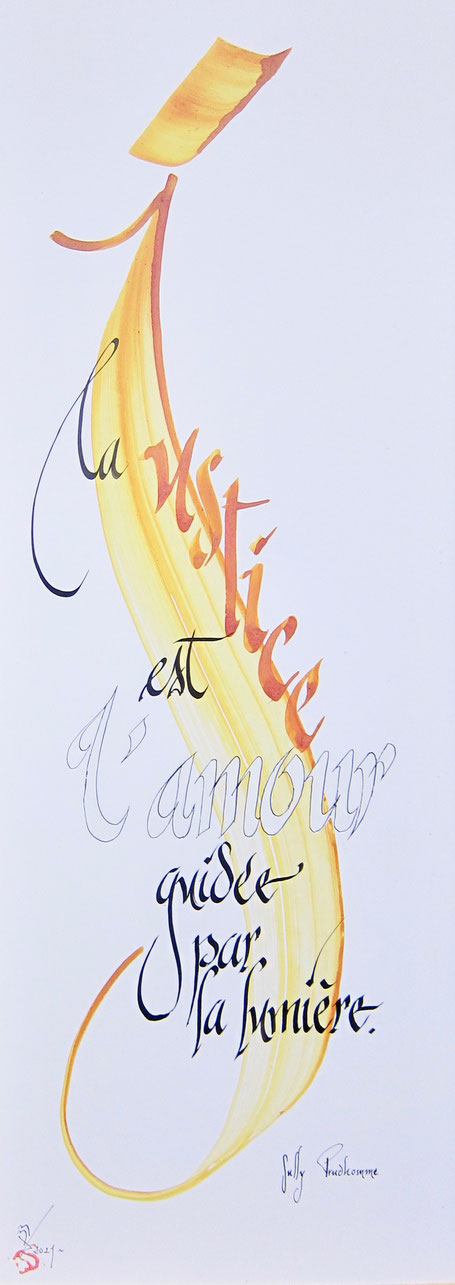 la Justice
est
l'amour
guidée
par
la lumière.
Sully Prudhomme